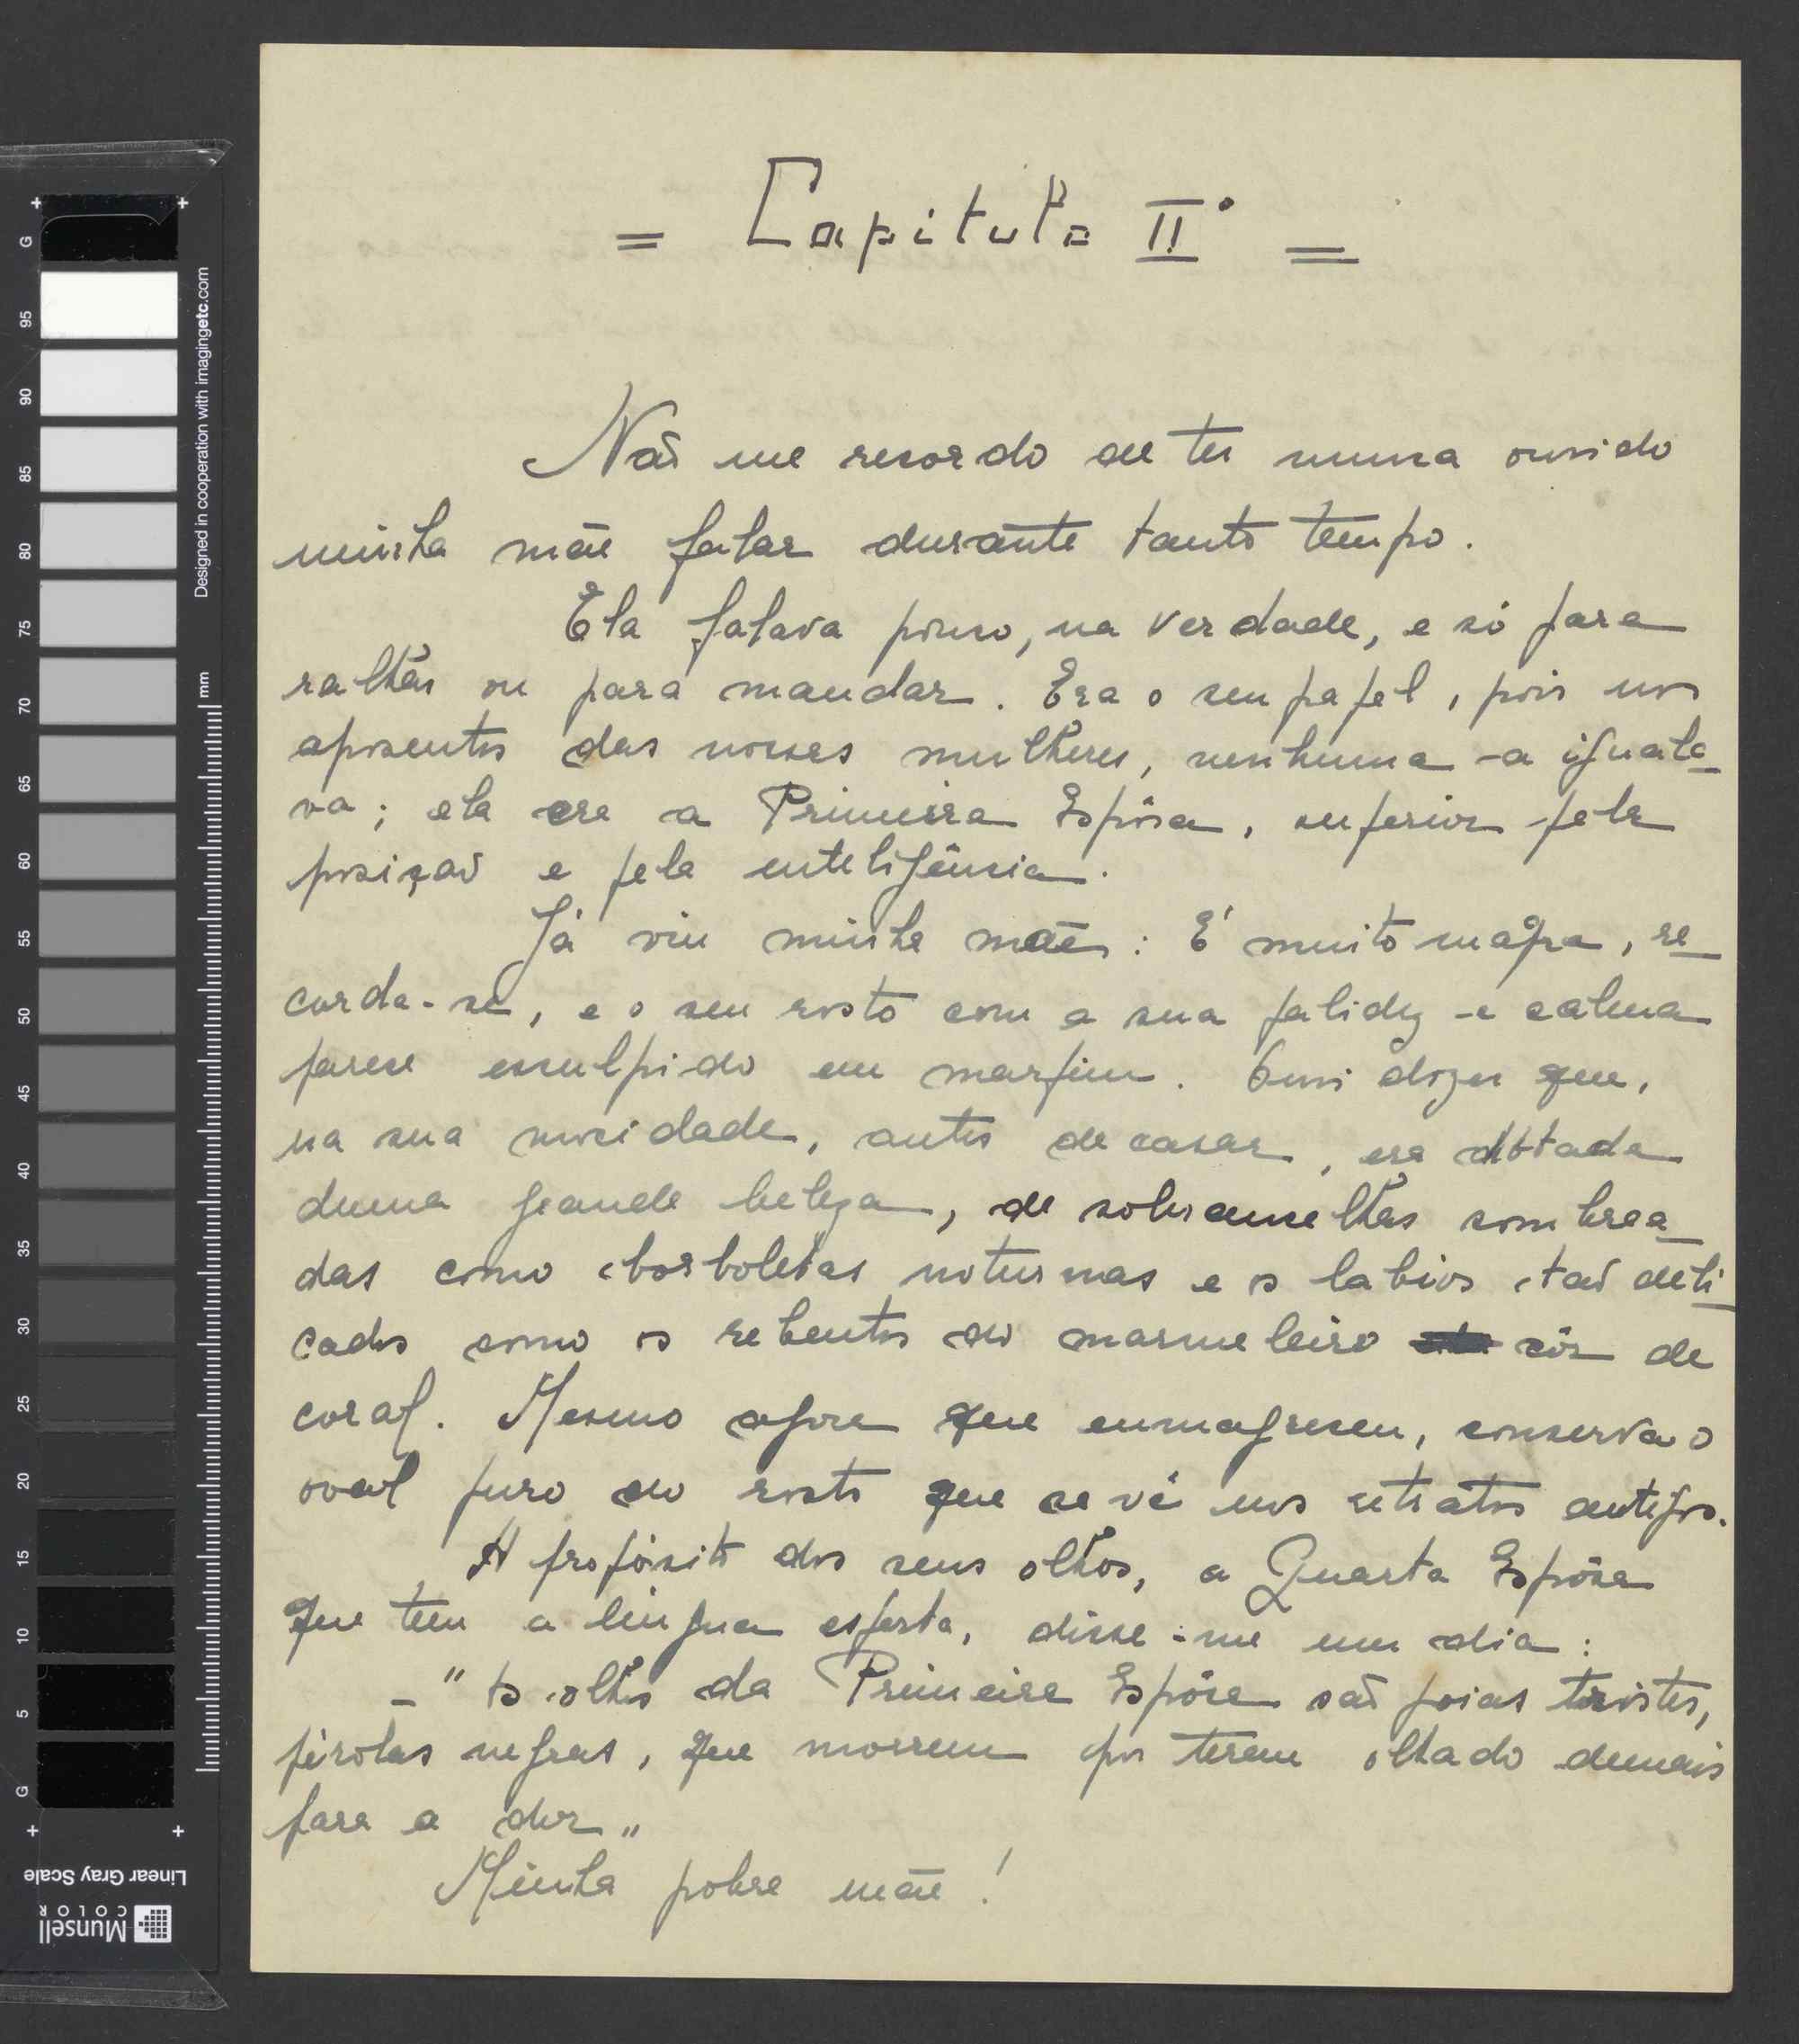 = Capitulo II° =
Não me recordo de ter nunca ouvido
minha mãe falar durante tanto tempo.
Ela falava pouco, na verdade, e só para
ralhar ou para mandar. Era o seu papel, pois nos
aposentos das nossas mulheres, nenhuma a iguala-
va; ela era a Primeira Espôsa, superior pela
posição e pela inteligência.
Já viu minha mãe: É muito magra, re-
corda-se, e o seu rosto com a sua palidez e calma
parece esculpido em marfim. Ouvi dizer que,
na sua mocidade, antes de casar, era dotada
duma grande beleza, de sobrancelhas sombrea-
das como borboletas noturnas e os labios tão deli-
cados como os rebentos do marmeleiro côr de
coral. Mesmo agora que emmagreceu, conserva o
oval puro do rosto que se vê nos retratos antigos.
A propósito dos seus olhos, a Quarta Espôsa
que tem a lingua esperta, disse-me um dia:
- "Os olhos da Primeira Espôsa são joias tristes,
pérolas negras, que morrem por terem olhado demais
para a dor"
Minha pobre mãe!
Designed in cooperation with imagingetc.com
mm
G
95
90
85
80
75
70
65
60
55
50
45
40
35
30
25
20
15
10
5
G
Linear Gray Scale
Munsell
COLOR